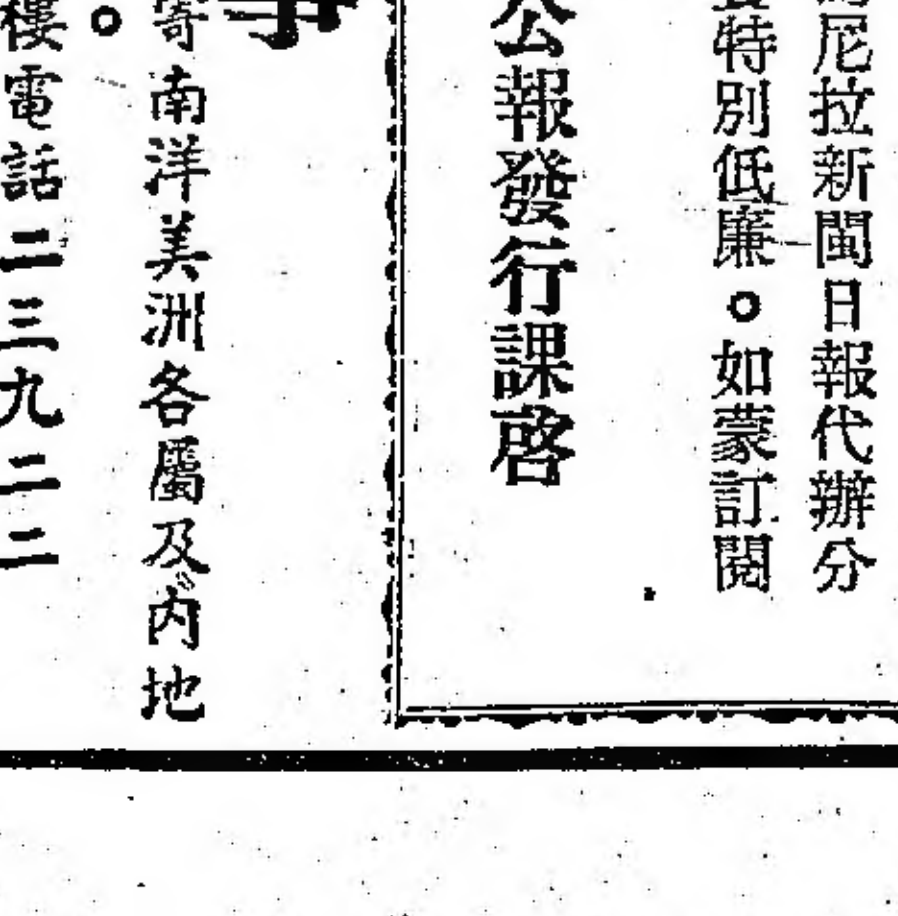 尼拉新閩日報代辦分
特別低廉。如蒙訂閱
公報發行課啓
寄南洋美洲各屬及內地
。
樓電話二三九二二